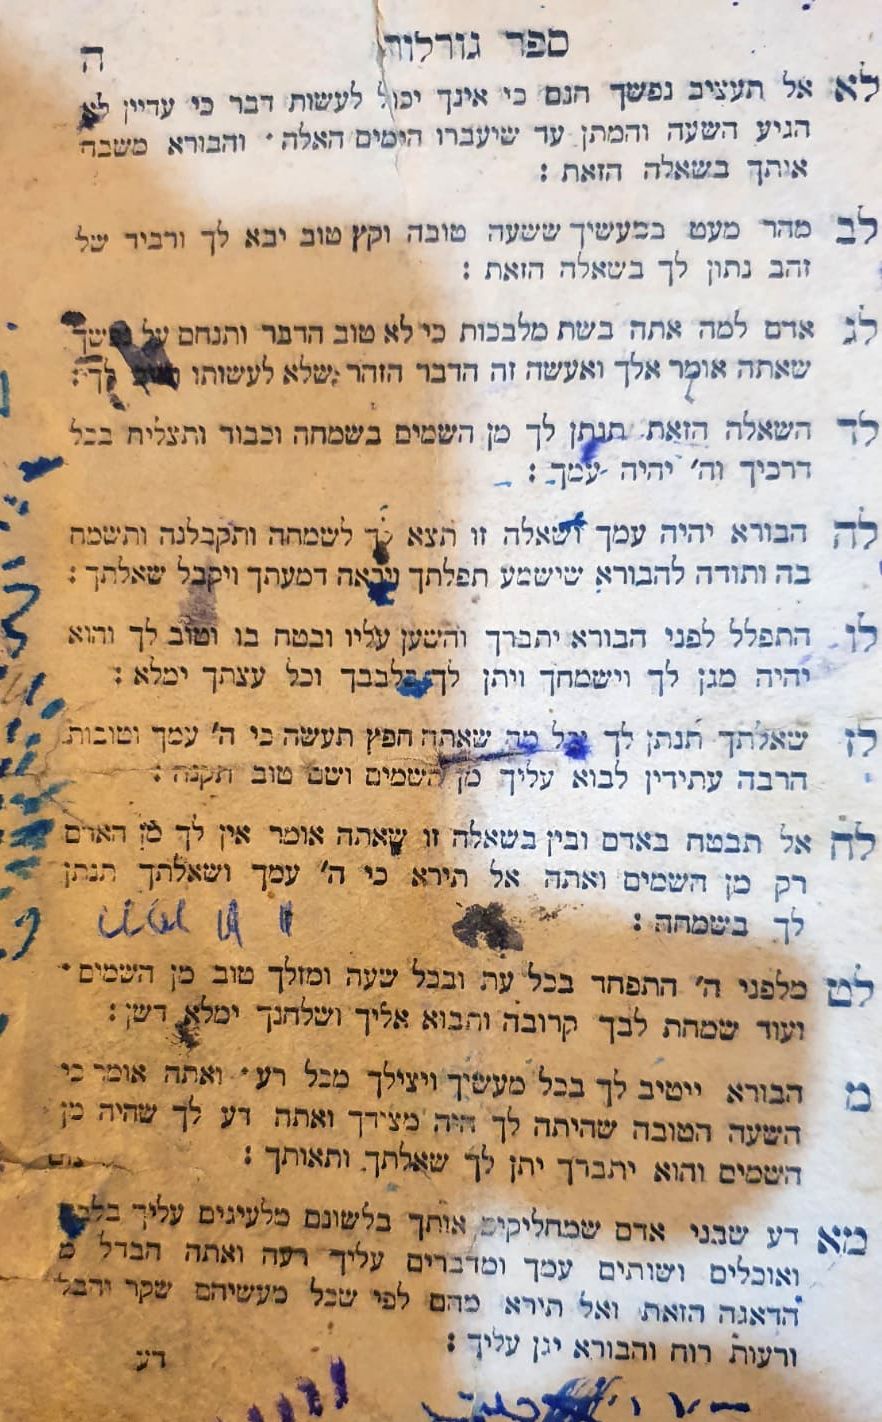 ספר גורלות
ה
לא אל תעציב נפשך חנם כי אינך יכול לעשות דבר כי עדיין לא
הגיע השעה והמתן עד שיעברו הימים האלה· והבורא משבח
אותך בשאלה הזאת :
לב מהר מעט במעשיך ששעה טובה וקץ טוב יבא לך ורביד של
זהב נתון לך בשאלה הזאת :
לג אדם למה אתה בשת מלבכות כי לא טוב הדבר ותנחם על נפשך
שאתה אומר אלך ואעשה זה הדבר הזהר שלא לעשותו לך :
לד השאלה הזאת תנתן לך מן השמים בשמחה וכבוד ותצליח בכל
דרכיך וה׳ יהיה עמך :
לה הבורא יהיה עמך ושאלה זו תצא לך לשמחה ותקבלנה ותשמח
בה ותודה להבורא שישמע תפלתך ויראה דמעתך ויקבל שאלתך :
לו התפלל לפני הבורא יתברך והשען עליו ובטח בו וטוב לך והוא
יהיה מגן לך וישמחך ויתן לך כלבבך וכל עצתך ימלא :
לז שאלתך תנתן לך וכל מה שאתה חפץ תעשה כי ה׳ עמך וטובות
הרבה עתידין לבוא עליך מן השמים ושם טוב תקנה :
לח אל תבטח באדם ובין בשאלה זו שאתה אומר אין לך מן האדם
רק מן השמים ואתה אל תירא כי ה׳ עמך ושאלתך תנתן
לך בשמחה :
לט מלפני ה׳ התפחד בכל עת ובכל שעה ומזלך טוב מן השמים·
ועוד שמחת לבך קרובה ותבוא אליך ושלחנך ימלא דשן :
מ הבורא ייטיב לך בכל מעשיך ויצילך מכל רע· ואתה אומר כי
השעה הטובה שהיתה לך היה מצידך ואתה דע לך שהיה מן
השמים והוא יתברך יתן לך שאלתך ותאותך :
מא דע שבני אדם שמחליקים אותך בלשונם מלעיגים עליך בלבם
ואוכלים ושותים עמך ומדברים עליך רעה ואתה הבדל מ
הדאגה הזאת ואל תירא מהם לפי שכל מעשיהם שקר והבל
ורעות רוח והבורא יגן עליך :
דע